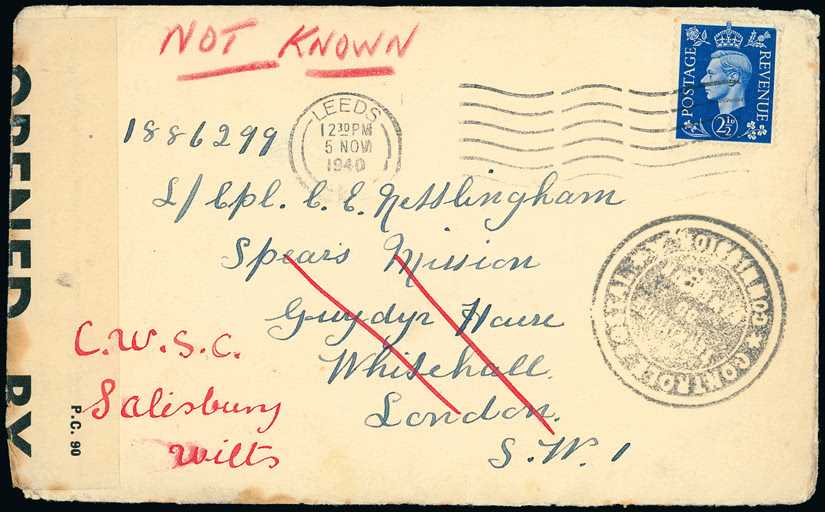 NOT KNOWN
POSTAGE REVENUE
2½D
LEEDS
12 30 PM
5 NOV
1940
1886299
L/Cpl. C. E. Nettlingham
Spears Mission
Gwydyr House
Whitehall.
London.
S.W. 1
C.W.S.C.
Salisbury
Wilts
OPENED BY
P.C. 90
CONTROL